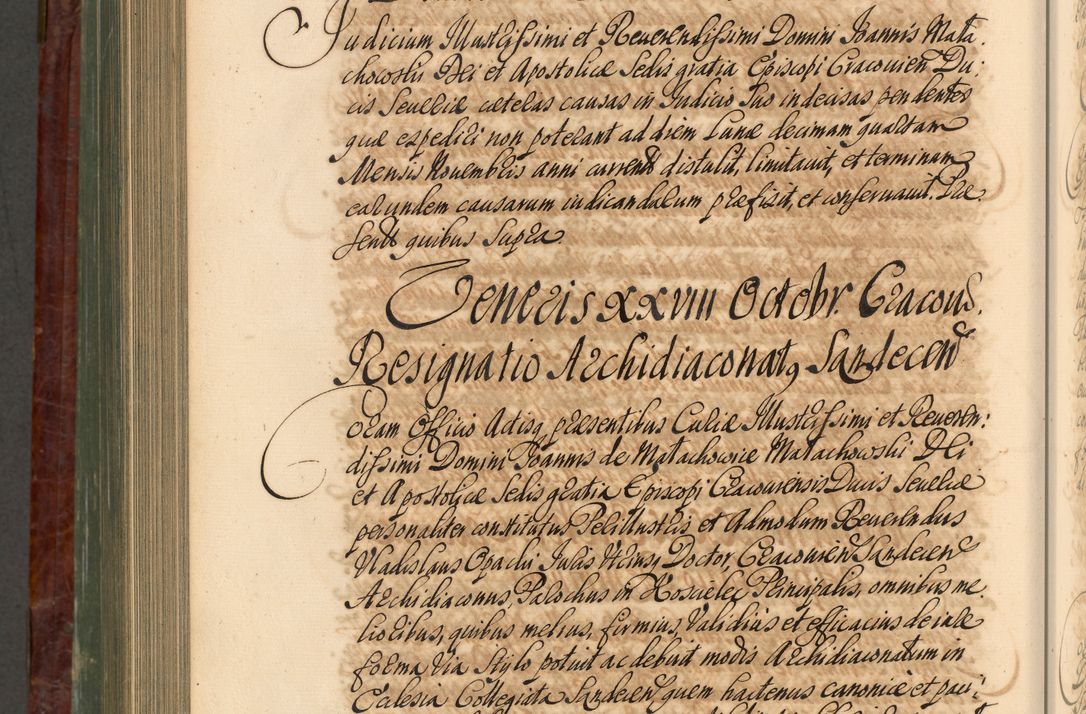 Judicium Illustrissimi et Reverendissimi Domini Joannis Mała
chowski Dei et Apostolicæ Sedis gratia Episcopi Cracovien Du:
cis Severiæ cæteras causas in Judicio suo indecisas pendentes
quæ expediri non poterant ad diem Lunæ decimam quartam
Mensis Novembris anni currents distulit, limitavit, et terminum
earundem causarum iudicandarum præfixit, et conservavit. Præ
sentt quibus supra
Veneris XXVIII Octobr. Cracoviæ.
Resignatio Archidiaconatq Sandecen
Coram Officio Actisq præsentibus Curiæ Illustrissimi et Reveren:
dissimi Domini Joannis de Małachowice Małachowski Dei
et Apostolicæ Sedis gratia Episcopi Cracoviensis Ducis Severiæ
personaliter constitutus Perillustris et Admodum Reverendus
Vladislaus Opacki Juris Utriusq Doctor, Cracovien Sandecen
Archidiaconus, Parochus in Koscielec Principalis, omnibus me
lioribus, quibus melius, firmius, validius et efficacius de iure
forma via stylo potuit ac debuit modis Archidiaconatum in
Ecclesia Collegiata Sandecen quem hactenus canonice et paci: